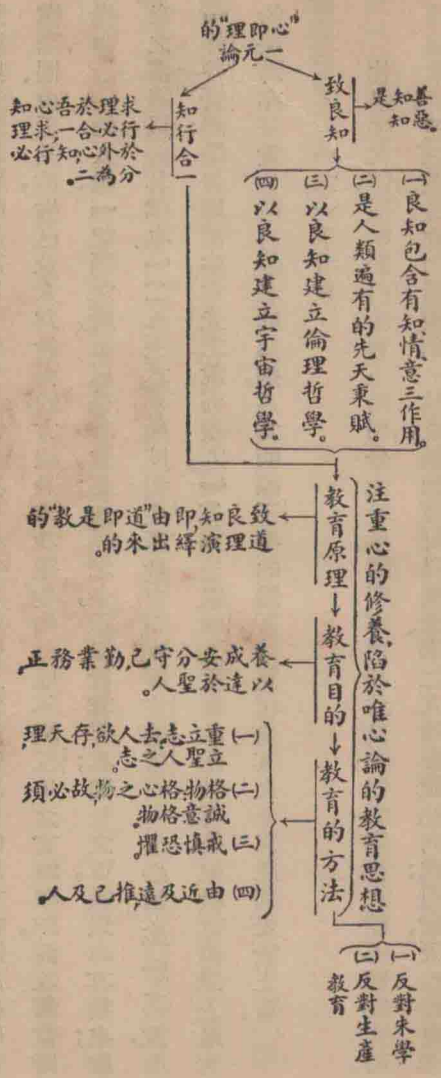 “心即理”的
一元論
致良知
是知善
知惡。
知行合一
求理於吾心知
行必合一,求理
於心外,知行必
分為二。
(一)良知包含有知、情、意三作用。
(二)是人類遍有的先天秉賦。
(三)以良知建立倫理哲學。
(四)以良知建立宇宙哲學。
教育原理
致良知,即由“道即是教”的
道理演繹出來的。
教育目的
養成安分守己,勤業務正,
以達於聖人。
教育的方法
(一)重立志,去人欲,存天理,
立聖人之志。
(二)格物,格心之物,故必須
誠意格物。
(三)戒慎恐懼。
(四)由近及遠,推己及人。
注重心的修養,陷於唯心論的教育思想
(一)反對朱學
(二)反對生產
教育